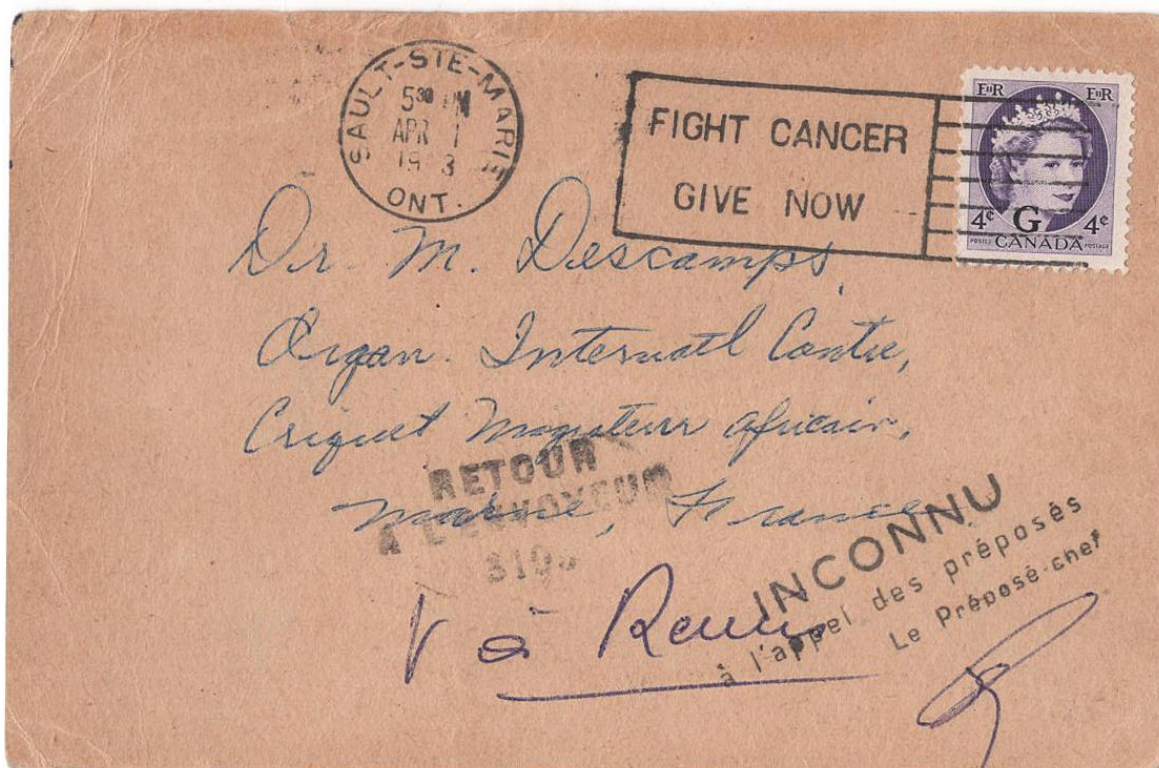 SAULT-STE-MARIE
5 30 PM
APR 1
19 3
ONT.
FIGHT CANCER
GIVE NOW
EIIR EIIR
4¢ G 4¢
POSTES CANADA POSTAGE
Dr. M. Descamps,
Organ. Internatl Contre,
Criquet Migrateur Africain,
Marne, France
RETOUR
A L'ENVOYEUR
INCONNU
à l'appel des préposés
Le Préposé-chef
V à Reims